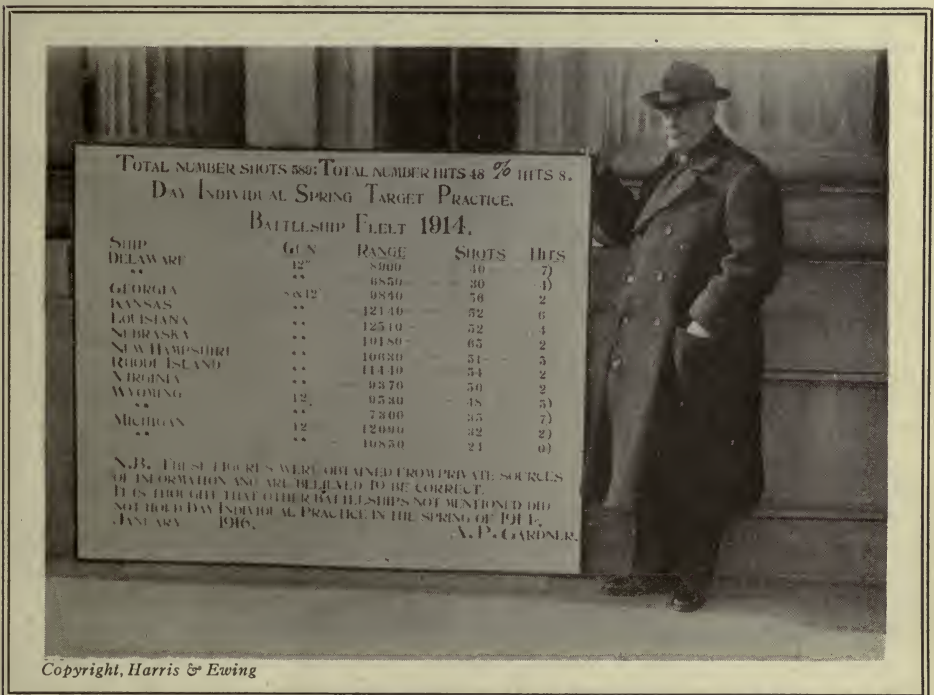 TOTAL NUMBER SHOTS 589: TOTAL NUMBER HITS 48 % HITS 8.
DAY INDIVIDUAL SPRING TARGET PRACTICE.
BATTLESHIP FLEET 1914.
SHIP GUN RANGE SHOTS HITS
DELAWARE 12" 8900 40 7)
" " 6850 30 4)
GEORGIA 8&12" 9840 56 2
KANSAS " 12140 52 6
LOUISIANA " 12510 52 4
NEBRASKA " 10180 65 2
NEW HAMPSHIRE " 10630 51
RHODE ISLAND " 11440 54 2
VIRGINIA " 9370 50 2
WYOMING 12" 9530 48
" " 7300 35 7)
MICHIGAN 12 12090 32 2)
" " 10850 24 0)
N.B. THESE FIGURES WERE OBTAINED FROM PRIVATE SOURCES
OF INFORMATION AND ARE BELIEVED TO BE CORRECT.
IT IS THOUGHT THAT OTHER BATTLESHIPS NOT MENTIONED DID
NOT HOLD DAY INDIVIDUAL PRACTICE IN THE SPRING OF 1914.
JANUARY 1916.
A. P. GARDNER.
Copyright, Harris & Ewing